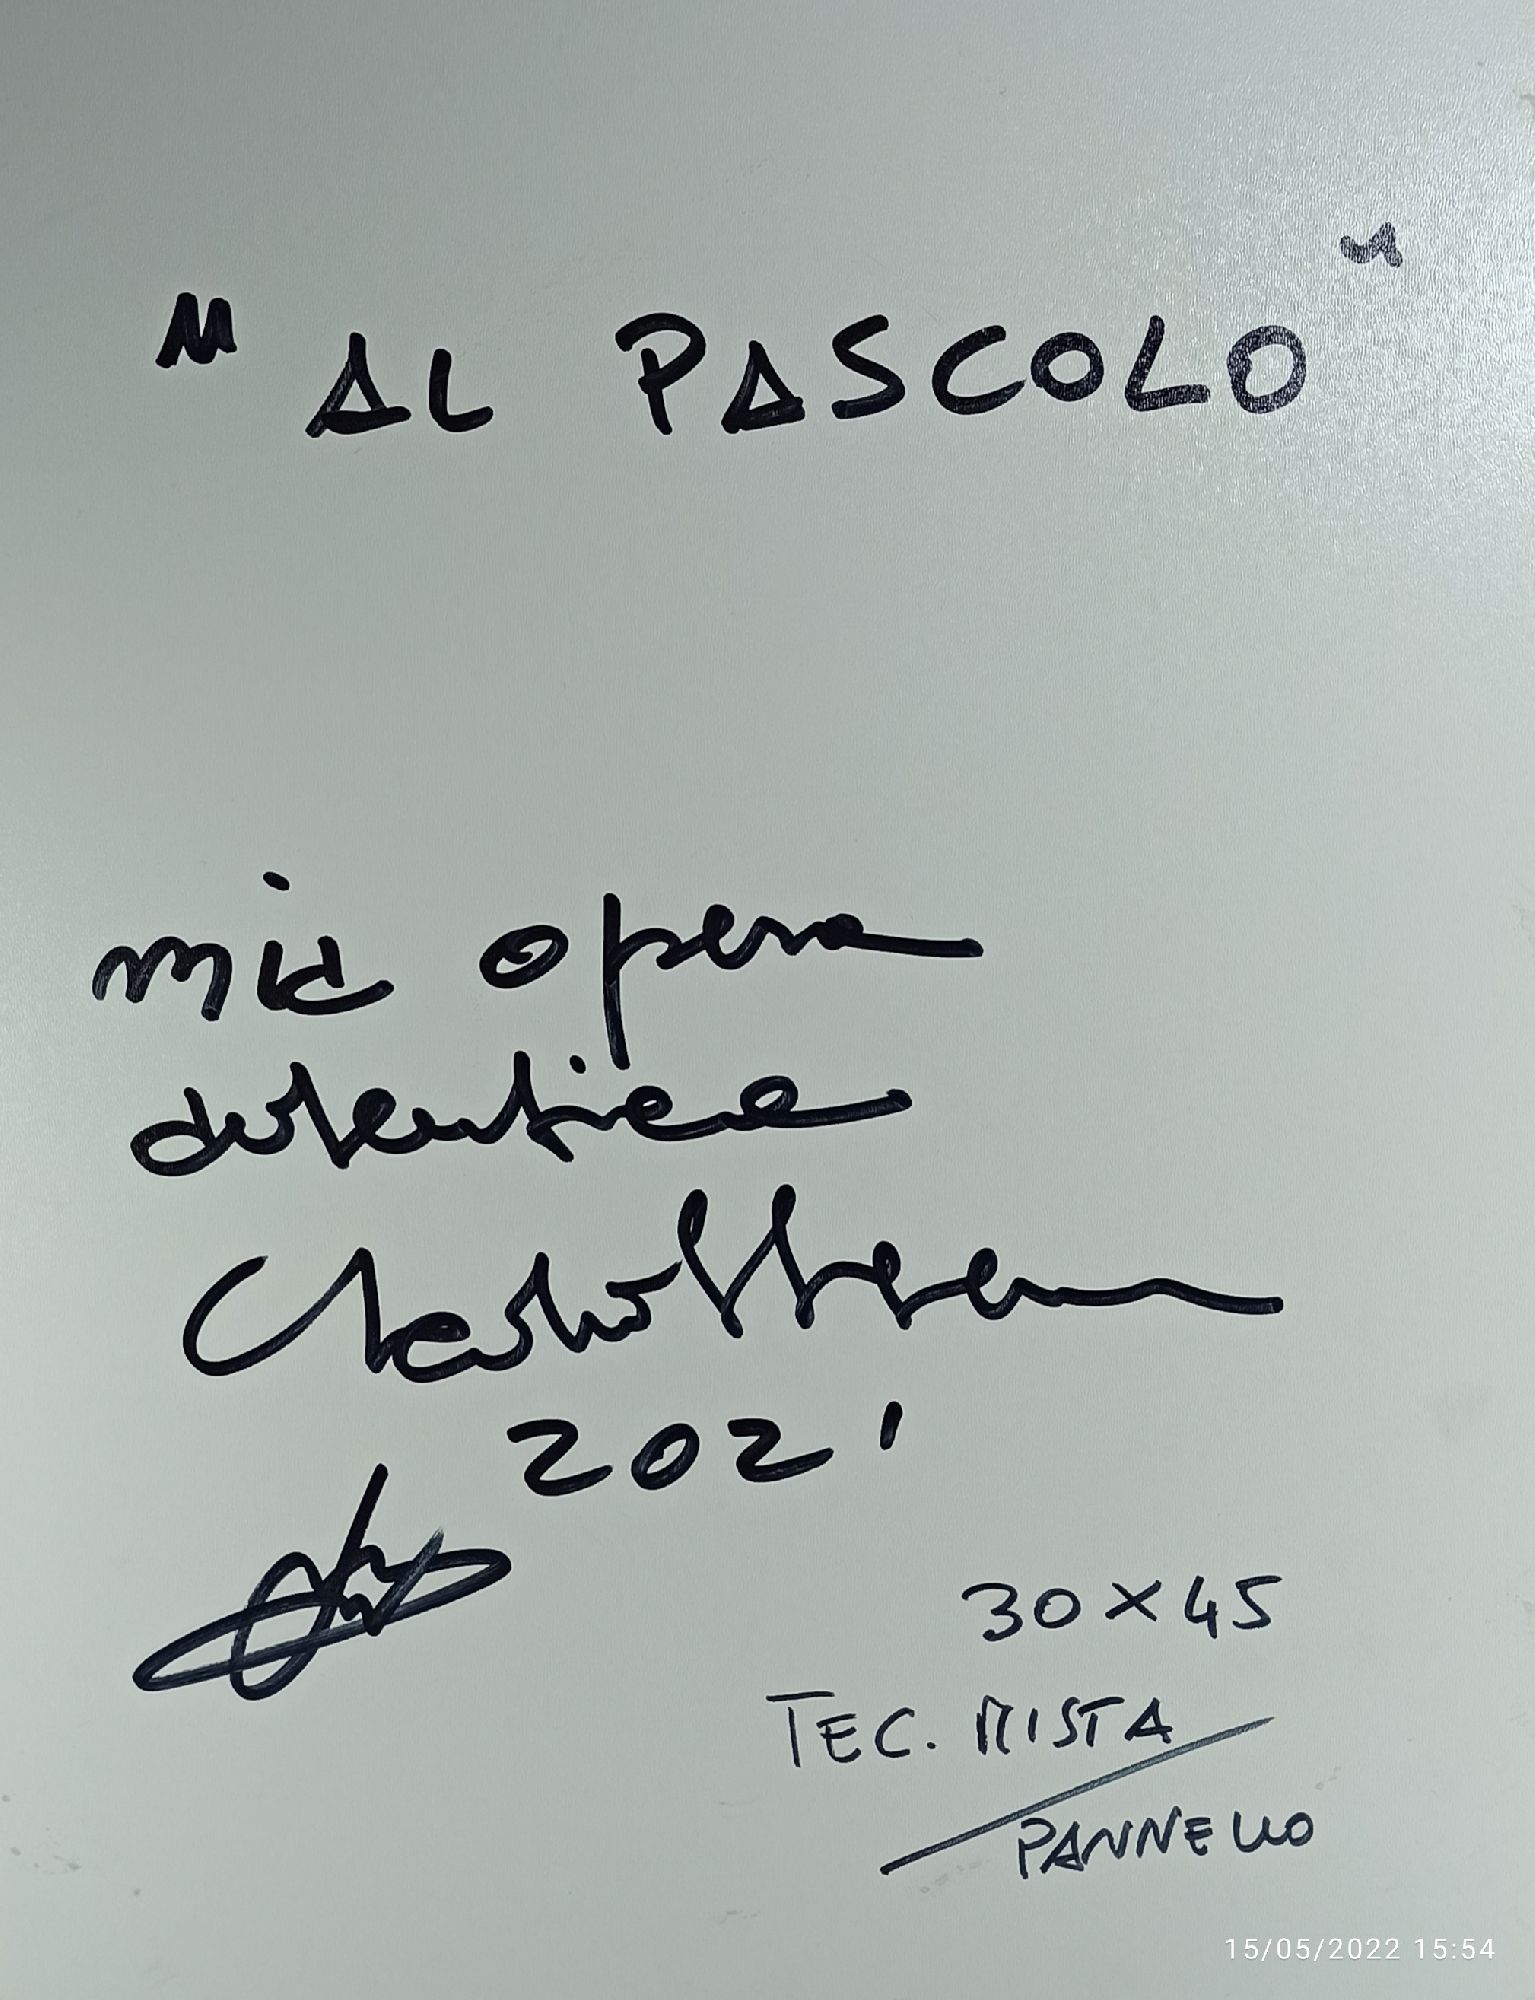 "AL PASCOLO"
mia opera
autentica
2021
30×45
TEC. MISTA
/
PANNELLO
15/05/2022 15:54